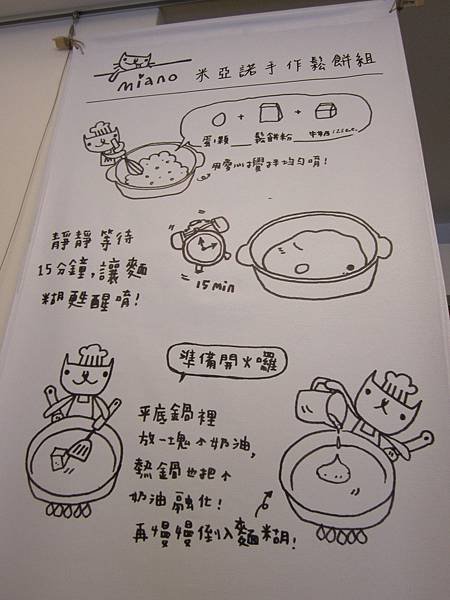 miano 米亞諾手作鬆餅組
蛋1顆 鬆餅粉 牛奶125c.c.
用愛心攪拌均勻唷!
靜靜等待
15分鐘,讓麵
糊甦醒唷!
=15min
準備開火囉
平底鍋裡
放一塊小奶油,
熱鍋也把小
奶油融化!
再慢慢倒入麵糊!